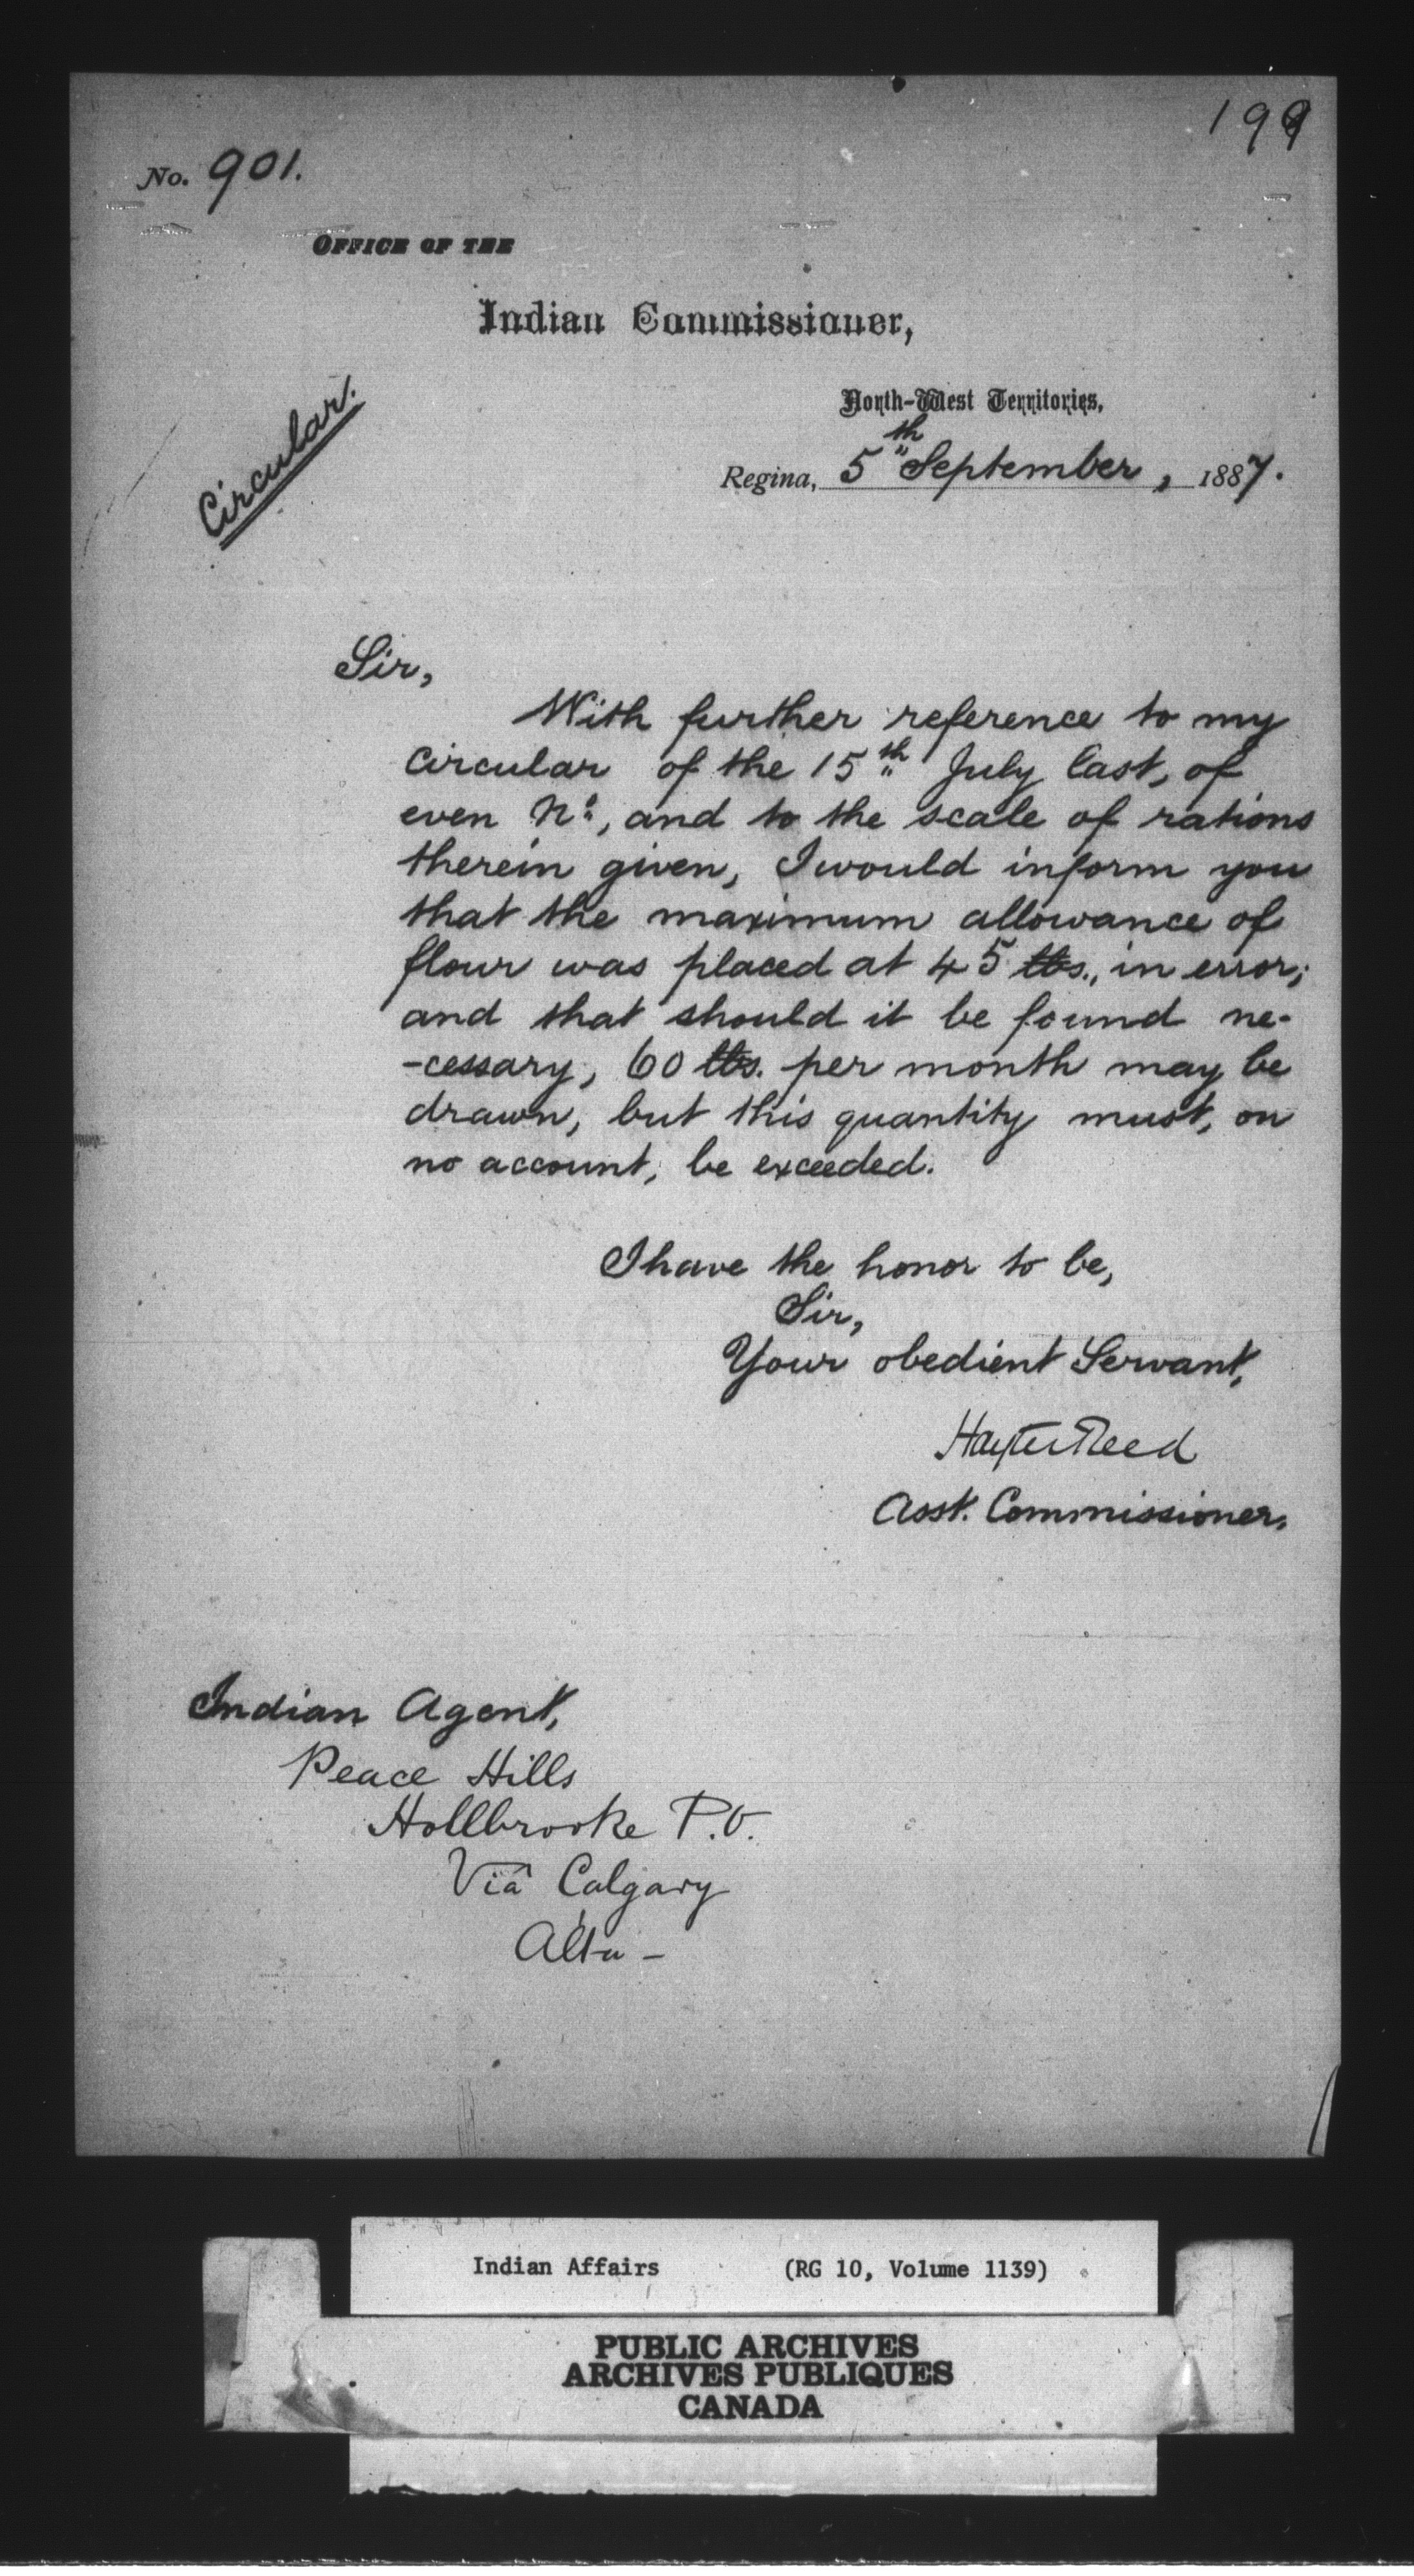 199
No. 901.
OFFICE OF THE
Indian Commissioner,
North-West Territories,
Regina, 5th September, 1887.
Circular.
Sir,
With further reference to my
circular of the 15th July last, of
even No., and to the scale of rations
therein given, I would inform you
that the maximum allowance of
flour was placed at 45 lbs., in error;
and that should it be found ne-
-cessary, 60 lbs. per month may be
drawn, but this quantity must, on
no account, be exceeded.
I have the honor to be,
Sir,
Your obedient Servant,
Hayter Reed
Asst. Commissioner.
Indian Agent,
Peace Hills
Hollbrooke P.O.
Viâ Calgary
Alta -
Indian Affairs (RG 10, Volume 1139)
PUBLIC ARCHIVES
ARCHIVES PUBLIQUES
CANADA